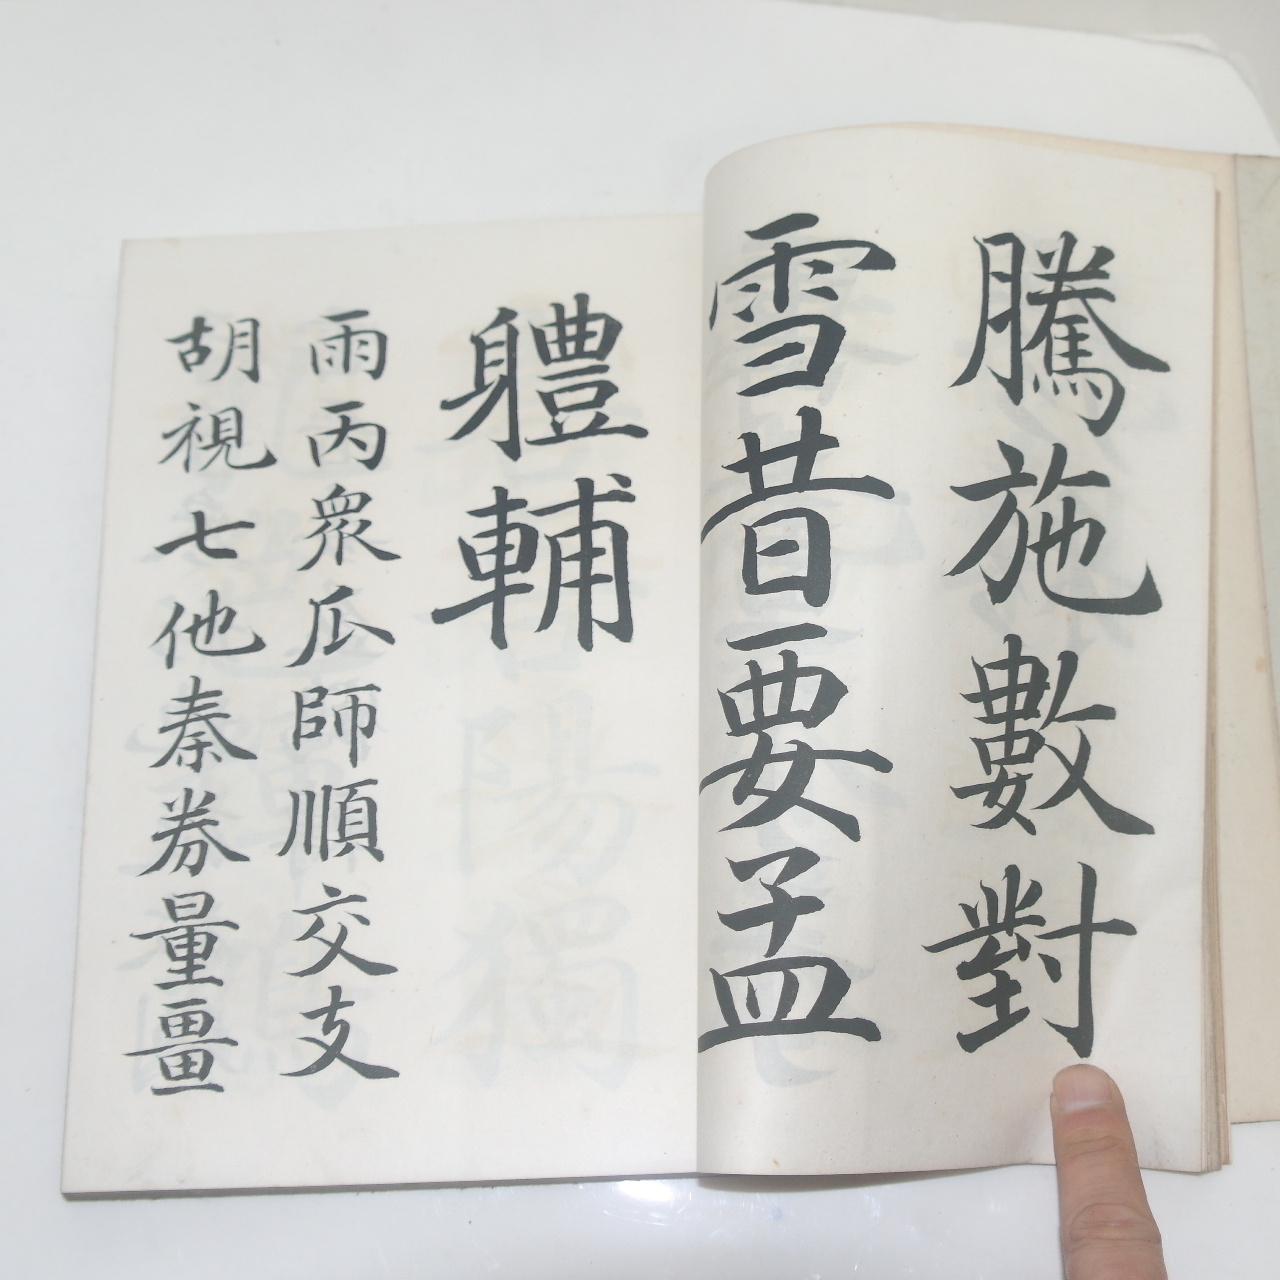 騰施數對
雪昔要孟
軆輔
雨丙眾瓜師順交支
胡視七他秦券量畺